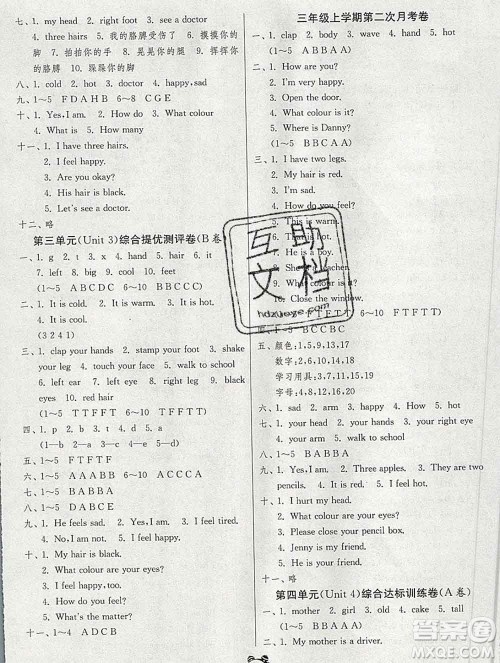 七、1. my head 2. right foot 3. see a doctor
4. three hairs 5. 我的胳膊受伤了 6. 摸摸你的
脚 7. 拍拍你的手 8. 晃晃你的腿 9. 挥挥你
的胳膊 10. 跺跺你的脚
八、1. cold 2. hot 3. doctor 4. happy, sad
九、1～5 F D A H B 6～8 C G E
十、1. Yes, I am. 2. How many 3. What colour
4. What is 5. How many
十一、1. I have three hairs.
2. I feel happy.
3. Are you okay?
4. His hair is black.
5. Let's see a doctor.
十二、略
第三单元(Unit 3)综合提优测评卷(B卷)
一、1. g 2. t 3. happy 4. hair 5. foot 6. it
7. left 8. big 9. leg 10. feeling
(1～5 ABCDC 6～10 BCCDC)
二、1. It is cold. 2. It is warm. 3. It is hot.
4. It is cool.
(3 2 4 1)
三、1. clap your hands 2. stamp your foot 3. shake
your leg 4. touch your face 5. walk to school
6. left ear 7. left eye 8. right ear 9. black
eyes 10. red hair
(1～5 TTFFF 6～10 TTFFT)
四、1. p 2. d 3. b 4. a
(1—b 2—d 3—c 4—a)
五、1～5 AAABB 6～10 AABBC
六、1～5 ABBBA
七、1～5 ABBDA
八、1～5 FTFTF
九、1. He feels sad. 2. Yes, I am. 3. I feel tired.
4. No, I am not.
十、1. My hair is black.
2. What colour are your eyes?
3. I feel happy!
十一、1～4 ADCB
三年级上学期第二次月考卷
一、1. clap 2. body 3. warm 4. have 5. hot
(1～5 ABBAA)
二、1. How are you?
2. I'm very happy.
3. Open the door.
4. What colour is it?
5. Where is Danny?
(1～5 BABBA)
三、1. I have two legs.
2. I'm happy.
3. I'm sad.
4. I feel hot.
5. This is warm.
7. It is windy.
9. What colour is it?
10. Close the window.
四、1～5 BCCBC
五、颜色:1,5,9,13,17
数字:2,6,10,14,18
学习用具:3,7,11,15,19
字母:4,8,12,16,20
六、1. sad 2. arm 3. warm 4. hand 5. hot
七、1～5 BABAA
八、1. shake your arm 2. walk to school
九、1. Yes, I am. 2. Three apples. 3. I have two
pencils. 4. It is yellow.
十、1. I hurt my head.
2. What colour are your eyes?
3. Please close your pencil box.
4. Jenny is my friend.
十一、略
第四单元(Unit 4)综合达标训练卷(A卷)
一、1. mother 2. girl 3. old 4. cake 5. tall
(1～5 ABBAC)
二、1. How old are you?
2. This is my friend.
3. My mother is a driver.
互助文档
hdzuoye.com
答案圈
MXQE.COM